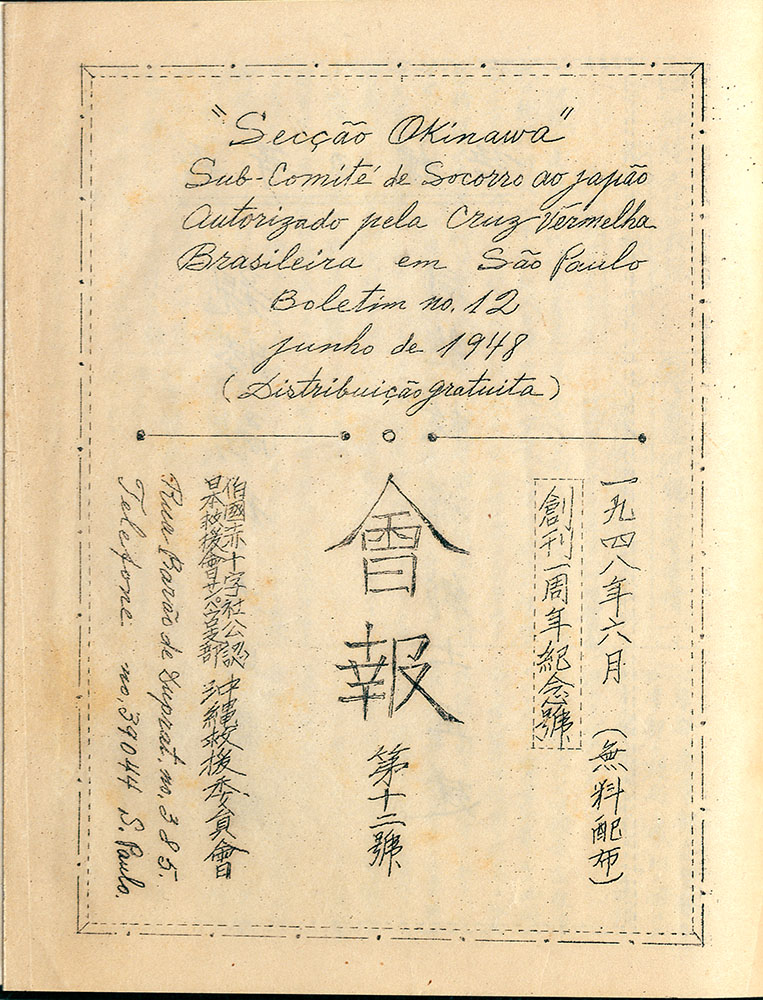 "Secção Okinawa"
Sub-Comité de Socorro ao japão
Autorizado pela Cruz Vermelha
Brasileira em São Paulo
Boletim no. 12
junho de 1948
(Distribuição gratuita)
一九四八年六月 (無料配布)
創刊一周年紀念號
會報
第十二號
伯國赤十字社公認
日本救援會サンパウロ支部
沖縄救援委員會
Rua Barão de Duprat, no. 385.
Telefone no. 39044 S. Paulo.